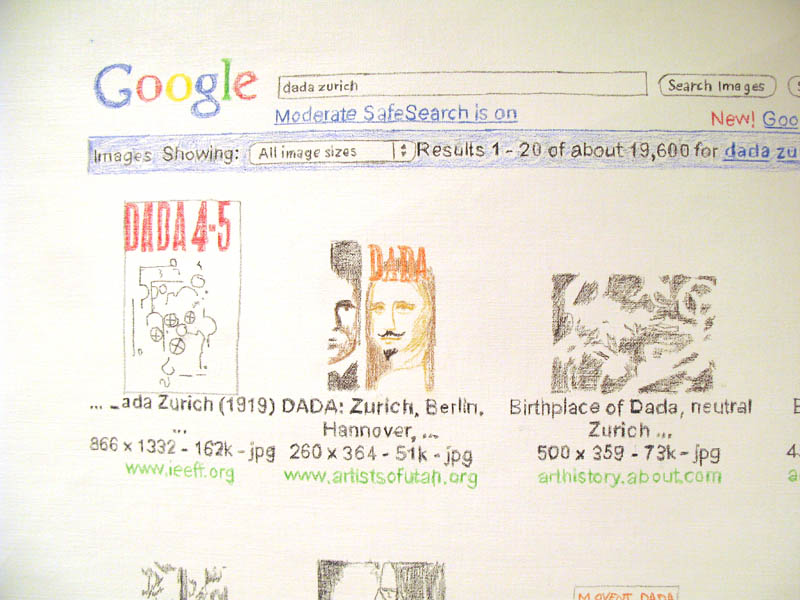 Google dada zurich Search Images
Moderate SafeSearch is on New! Goo
Images Showing: All image sizes Results 1 - 20 of about 19,600 for dada zu
DADA 4-5
DADA
... _ada Zurich (1919) ...
866 x 1332 - 162k - jpg
www.ieeff.org
DADA: Zurich, Berlin,
Hannover, ...
260 x 364 - 51k - jpg
www.artistsofutah.org
Birthplace of Dada, neutral
Zurich ...
500 x 359 - 73k - jpg
arthistory.about.com
MOVENT DADA